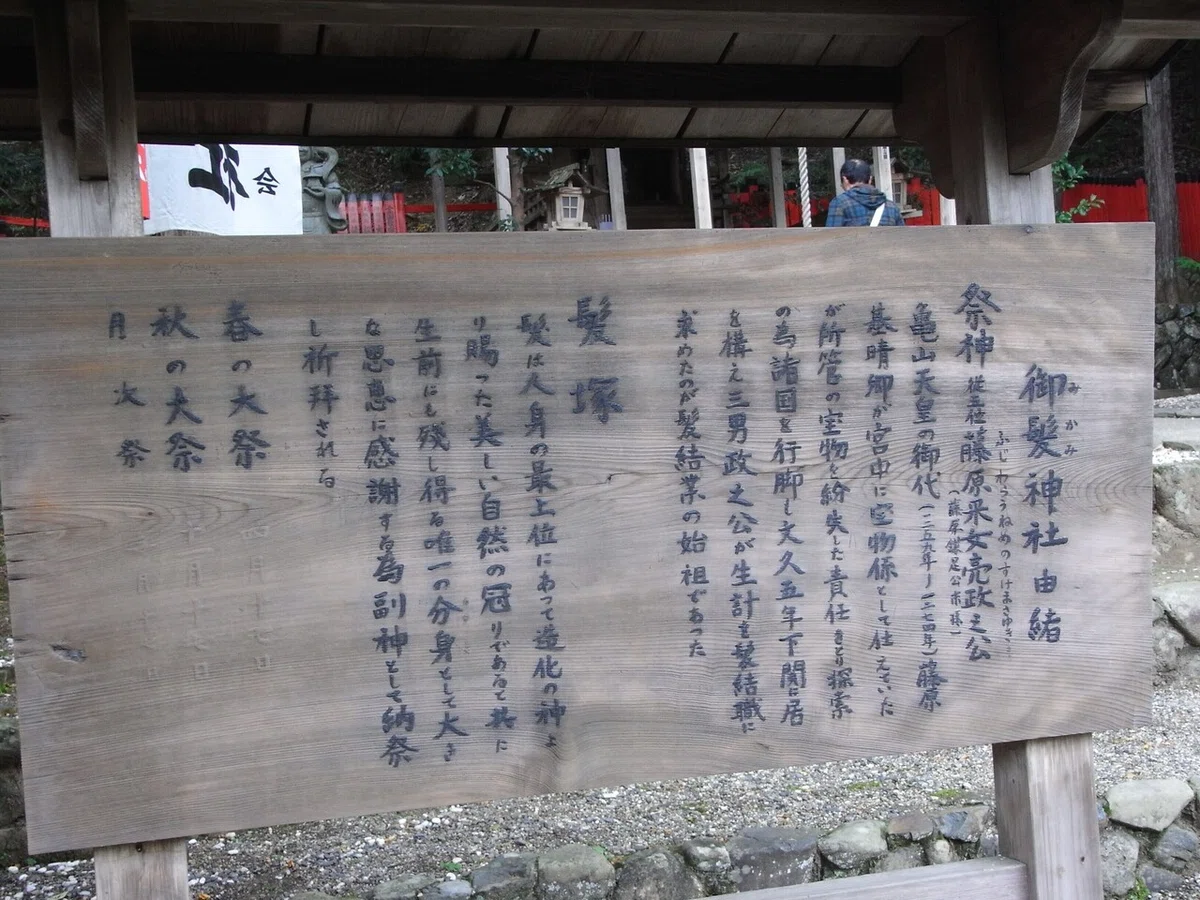 御髪神社由緒
みかみ
祭神 従五位 藤原采女亮政之公
ふじわらうねめのすけまさゆき
(藤原鎌足公末裔)
亀山天皇の御代(一二五九年ー一二七四年)藤原
基晴卿が宮中に宝物係として仕えていた
が所管の宝物を紛失した責任をとり探索
の為諸国を行脚し文久五年下関に居
を構え三男政之公が生計を髪結職に
求めたのが髪結業の始祖であった
髪塚
髪は人身の最上位にあって造化の神よ
り賜った美しい自然の冠りであると共に
生前にも残し得る唯一の分身として大き
な恩恵に感謝する為副神として納祭
し祈拝される
春の大祭
秋の大祭
月次祭
社
会